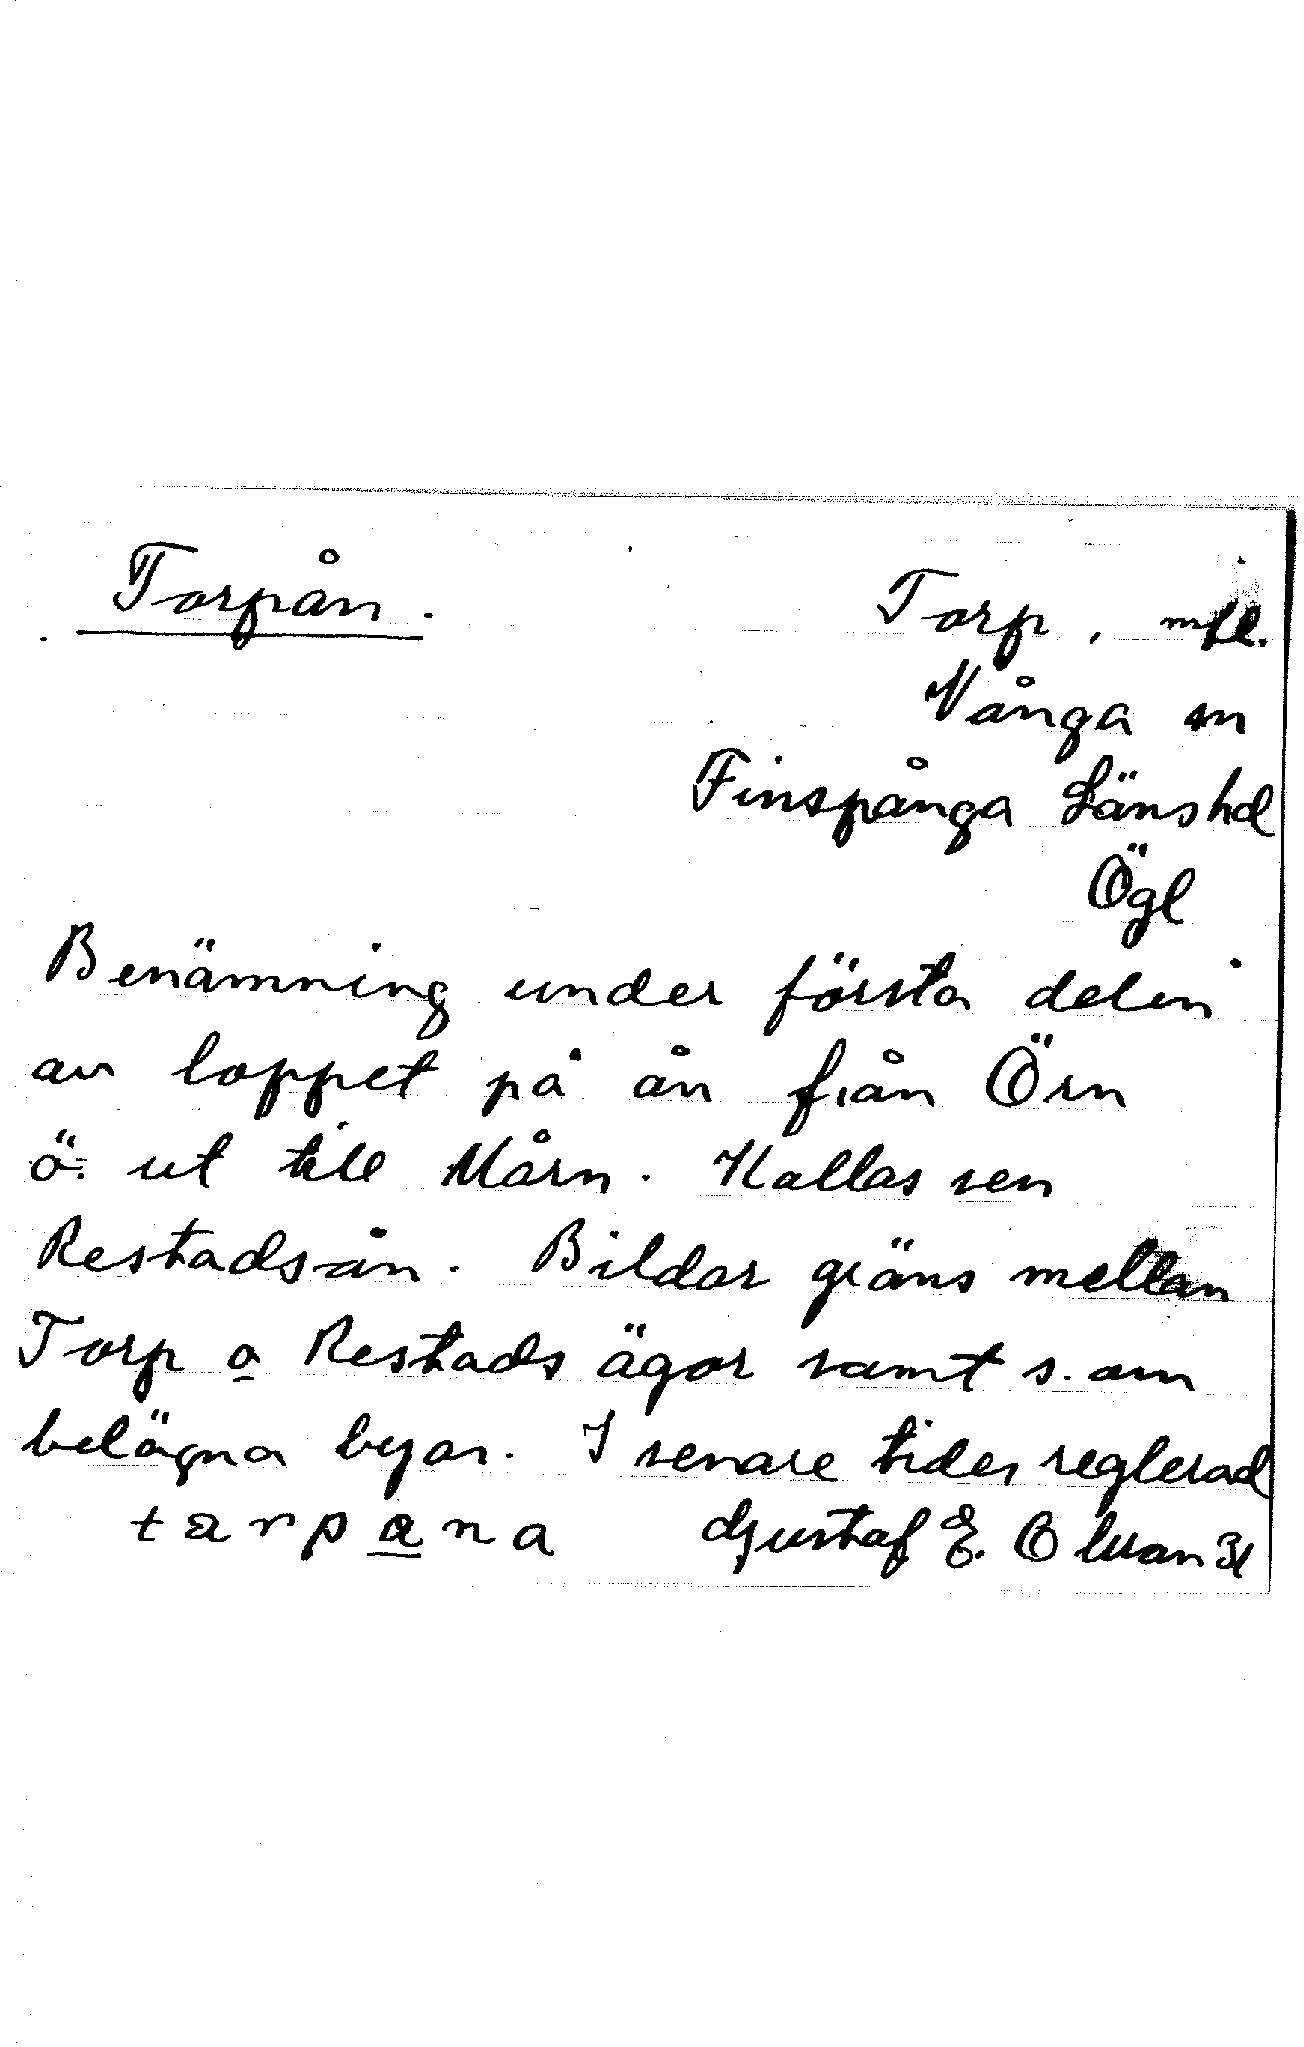 Torpån.
Torp, mfl.
Vånga sn
Finspånga Länshd
Ögl
Benämning under första delen
av loppet på ån från Örn
ö. ut till Mårn. Kallas sen
Restadsån. Bildar gräns mellan
Torp o Restads ägor samt s. om
belägna byar. I senare tider reglerad
tarpana Gustaf E. 31